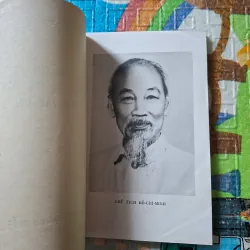 CHỦ TỊCH HỒ-CHÍ-MINH